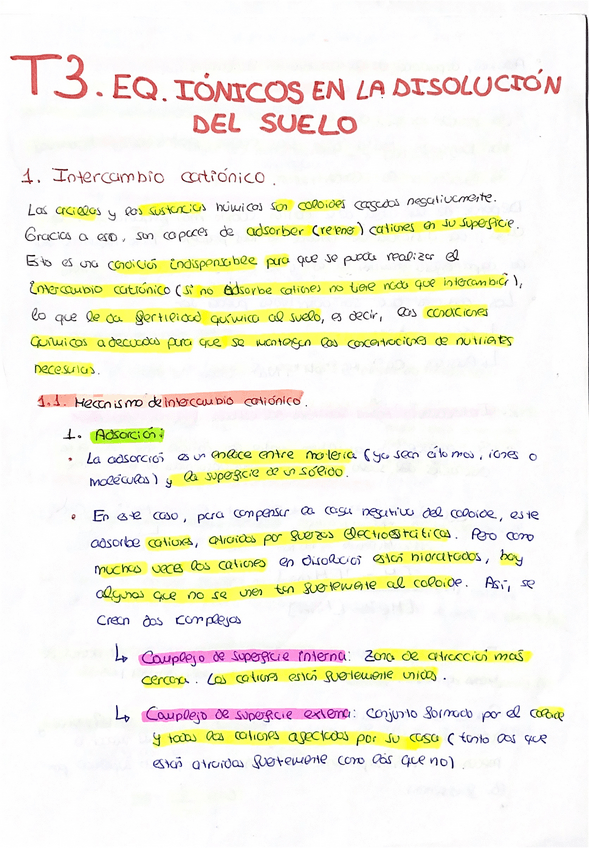 T3. EQ. IÓNICOS EN LA DISOLUCIÓN
DEL SUELO
1. Intercambio catiónico.
Las arcillas y las sustancias húmicas son coloides cargados negativamente.
Gracias a eso, son capaces de adsorber (retener) cationes en su superficie.
Esto es una condición indispensable para que se pueda realizar el
intercambio catiónico (si no adsorbe cationes no tiene nada que intercambiar),
lo que le da fertilidad química al suelo, es decir, las condiciones
químicas adecuadas para que se mantengan las concentraciones de nutrientes
necesarias.
1.1. Mecanismo de intercambio catiónico.
1. Adsorción:
• La adsorción es un enlace entre materia (ya sean átomos, iones o
moléculas) y la superficie de un sólido.
• En este caso, para compensar la carga negativa del coloide, este
adsorbe cationes, atraídos por fuerzas electrostáticas. Pero como
muchas veces los cationes en disolución están hidratados, hay
algunos que no se unen tan fuertemente al coloide. Así, se
crean dos complejos
↳ Complejo de superficie interna: Zona de atracción más
cercana. Los cationes están fuertemente unidos.
↳ Complejo de superficie externa: Conjunto formado por el coloide
y todos los cationes afectados por su carga (tanto los que
están atraídos fuertemente como los que no).